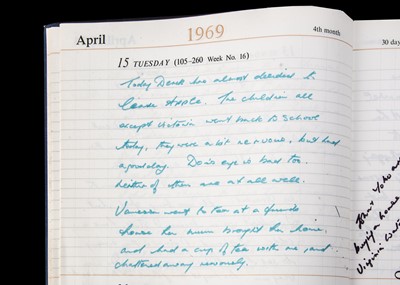 April
1969
4th month
30 day
15 TUESDAY (105–260 Week No. 16)
Today Derek has almost decided to
leave Apple. The children all
except Victoria went back to school
today, they were a bit nervous, but had
a good day. Dan's eye is bad too.
neither of them are at all well.
Vanessa went to tea at a friends
house her mum brought her home,
and had a cup of tea with me, and
chattered away nervously.
John Yoko are
buying a house
Virginia Water